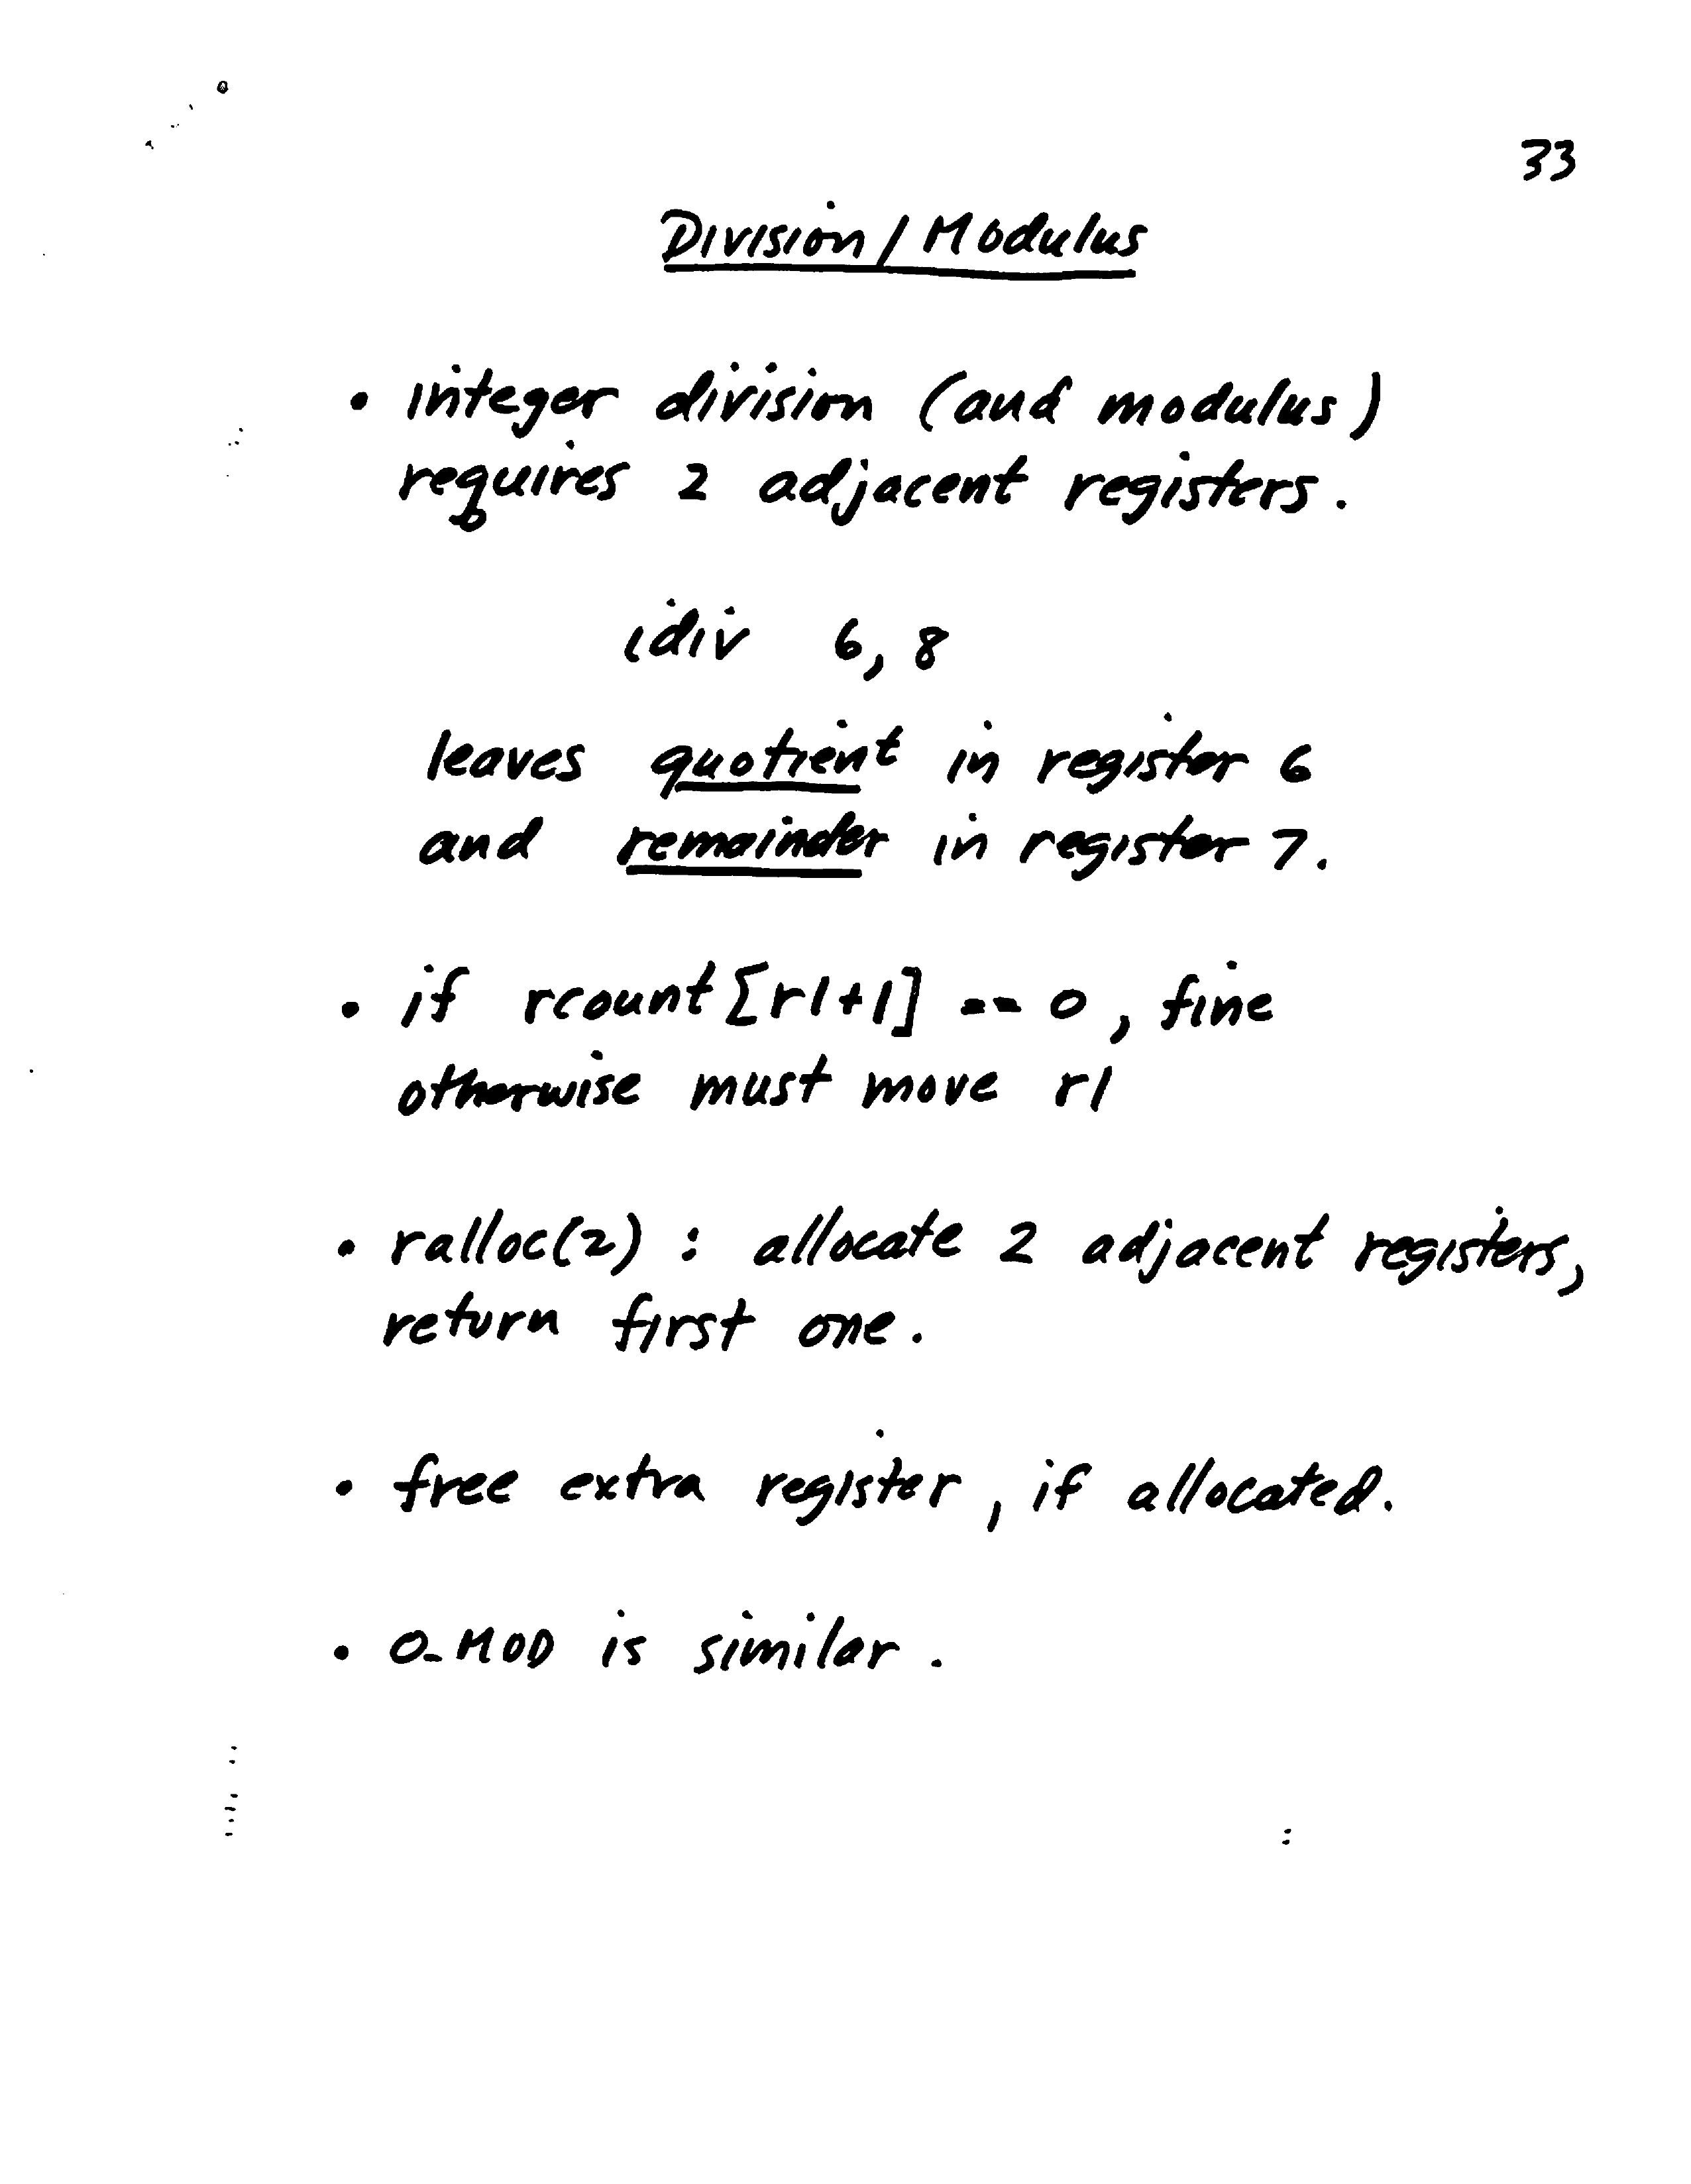 33
Division / Modulus
• integer division (and modulus)
requires 2 adjacent registers.
idiv 6, 8
leaves quotient in register 6
and remainder in register 7.
• if rcount[r1+1] == 0, fine
otherwise must move r1
• ralloc(2) : allocate 2 adjacent registers,
return first one.
• free extra register, if allocated.
• O_MOD is similar.